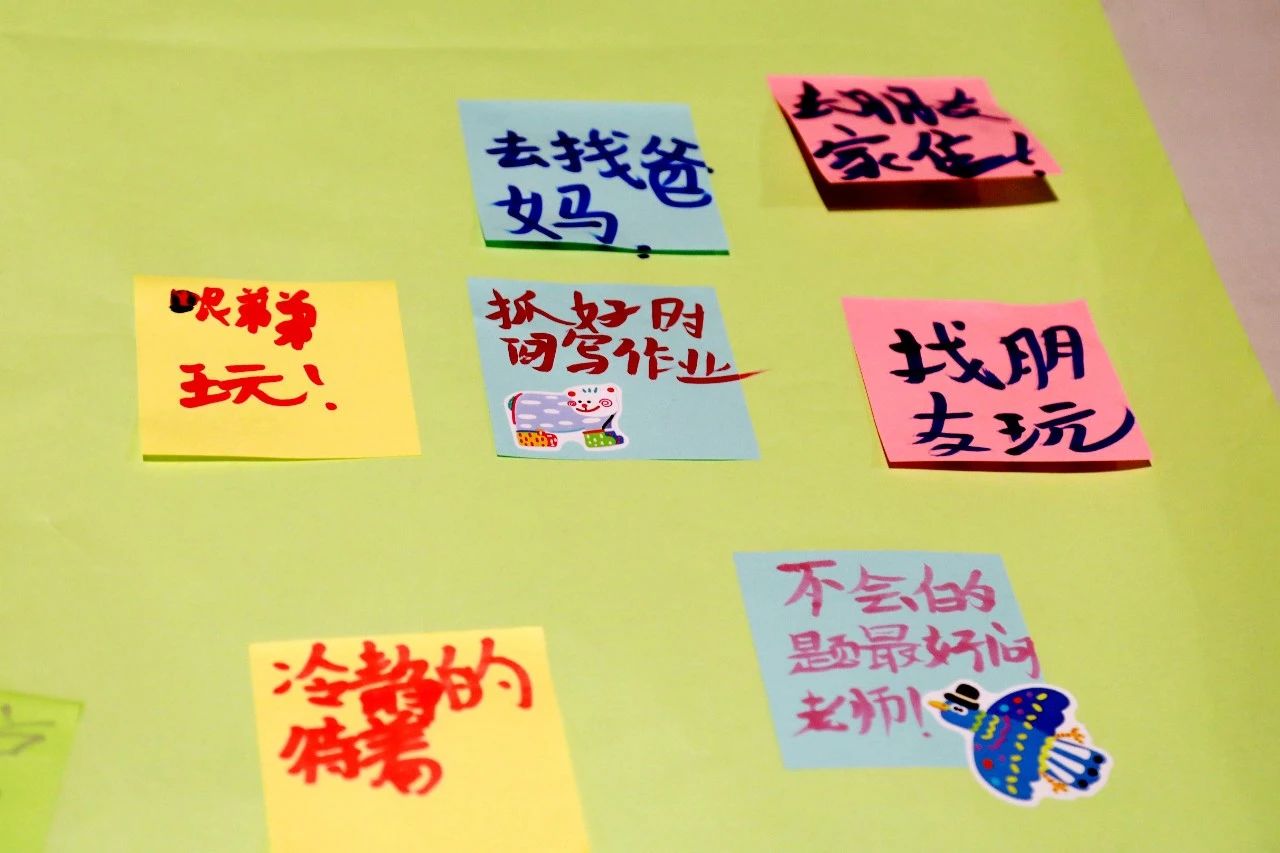 去找爸
妈.
去朋友
家住!
跟弟弟
玩!
抓好时
间写作业
找朋
友玩
冷静的
待着
不会的
题最好问
老师!